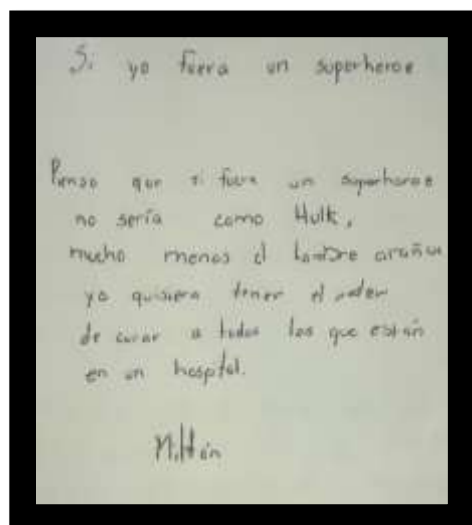 Si yo fuera un superheroe
Pienso que si fuera un superheroe
no sería como Hulk,
mucho menos el hombre araña
yo quisiera tener el poder
de curar a todos los que están
en un hospital.
Miltón